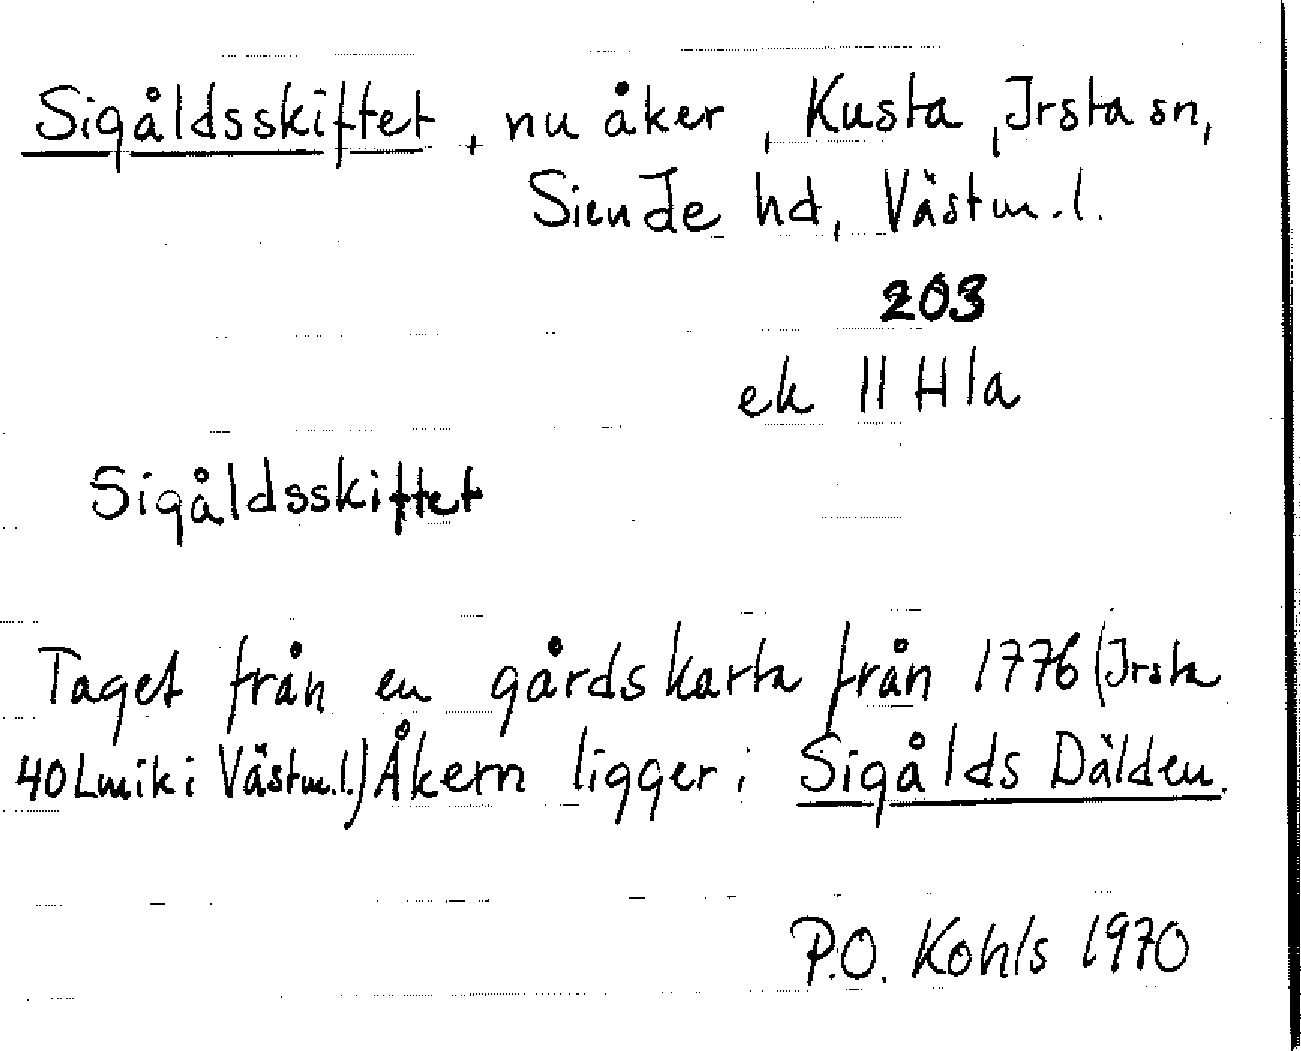 Sigåldsskiftet, nu åker, Kusta, Irsta sn,
Siende hd, Västm.l.
203
ek 11 H 1a
Sigåldsskiftet
Taget från en gårdskarta från 1776 (Irsta
40 Lmik i Västm.l.) Åkern ligger i Sigålds Dälden.
P.O. Kohls 1970